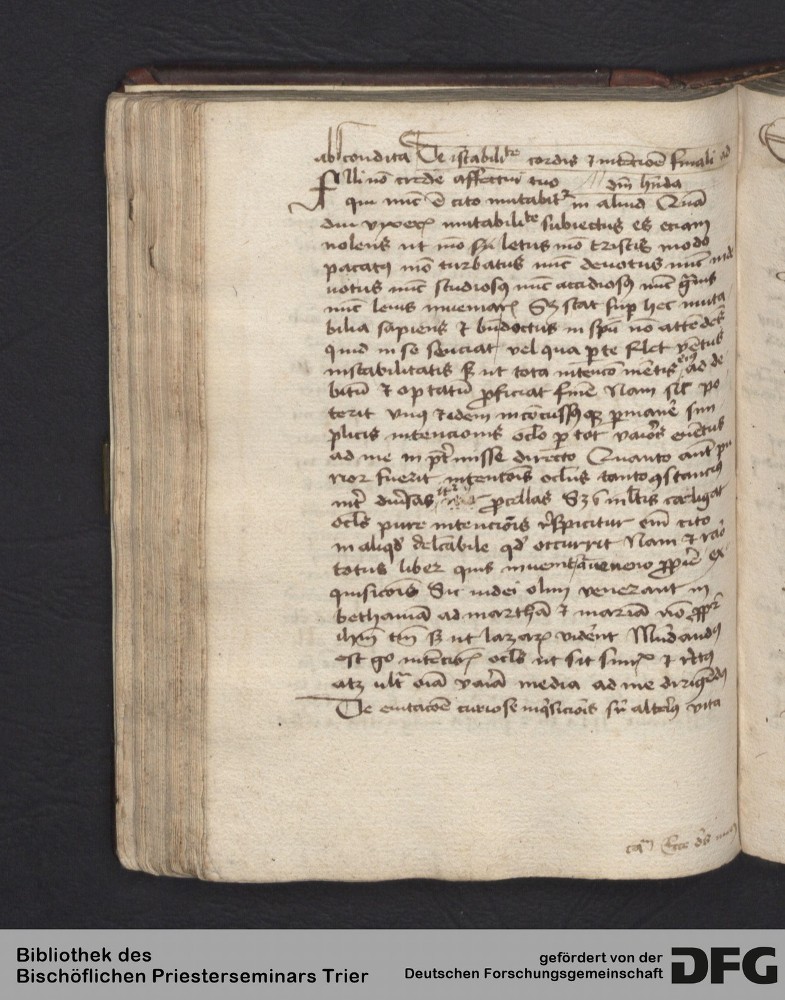 abscondita De īstabilite cordis ⁊ intētiōe finali ad
Fili nō crede affectui tuo dm̄ hn̄da
qui nūc ē cito mutabitr in aliud Quā
diu vixeris mutabilite subiectus es eciam
nolens ut mō sis letus mō tristis modo
pacatus mō turbatus nūc deuotus nūc inde
uotus nūc studiosus nūc accidiosus nūc grauis
nūc leuis inueniaris Sed stat super hec muta
bilia sapiens ⁊ bn̄ doctus in spū nō attēdēs
quid in se senciat vel qua parte flet vētus
instabilitatis sed ut tota intencō mētis eius ad de
bitū ⁊ optatū proficiat finē Nam sic po
terit vnus ⁊ idem incōcussusque permanere sim
plicis intencionis oclo per tot varios euētus
ad me in pretermisse directo Quanto aut pu
rior fuerit intentōis oclus tanto constancius
inter diuersas itur procellas Sed in multis caligat
ocls pure intencōis respicitur enim cito
in aliqd delcabile qd occurrit Nam ⁊ raro
totus liber quis inuenitur a neuo proprie ex
quisicōis Sic iudei olim venerant in
bethaniā ad marthā ⁊ mariā nō propter
ihm tm sed ut lazarum viderent Mūdandus
est go intēcionis ocls ut sit simplex ⁊ rectus
atz ultra oīa varia media ad me dirigendus
De euitacōe curiose inquisiciōis super alterius vita